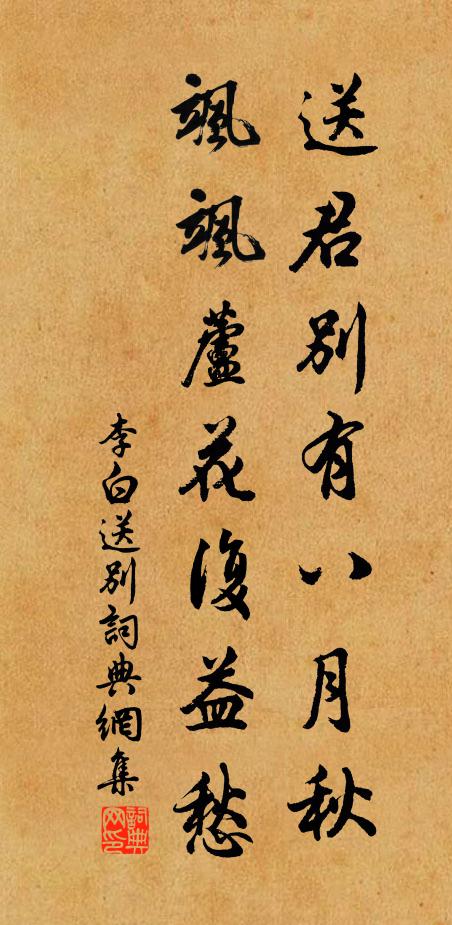 送君別有八月秋
颯颯蘆花復益愁
李白送別詞典網集
詞典
网印